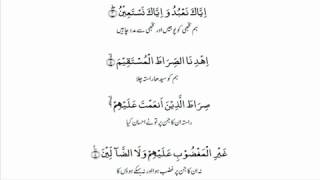 اِيَّاكَ نَعْبُدُ وَ اِيَّاكَ نَسْتَعِيْنُ ﴿۴﴾
ہم تجھی کو پوجیں اور تجھی سے مدد چاہیں
اِهْدِنَا الصِّرَاطَ الْمُسْتَقِيْمَ ﴿۵﴾
ہم کو سیدھا راستہ چلا
صِرَاطَ الَّذِيْنَ اَنْعَمْتَ عَلَيْهِمْ ﴿۶﴾
راستہ ان کا جن پر تو نے احسان کیا
غَيْرِ الْمَغْضُوْبِ عَلَيْهِمْ وَلَا الضَّآلِّيْنَ ﴿۷﴾
نہ ان کا جن پر غضب ہوا اور نہ بہکے ہوؤں کا